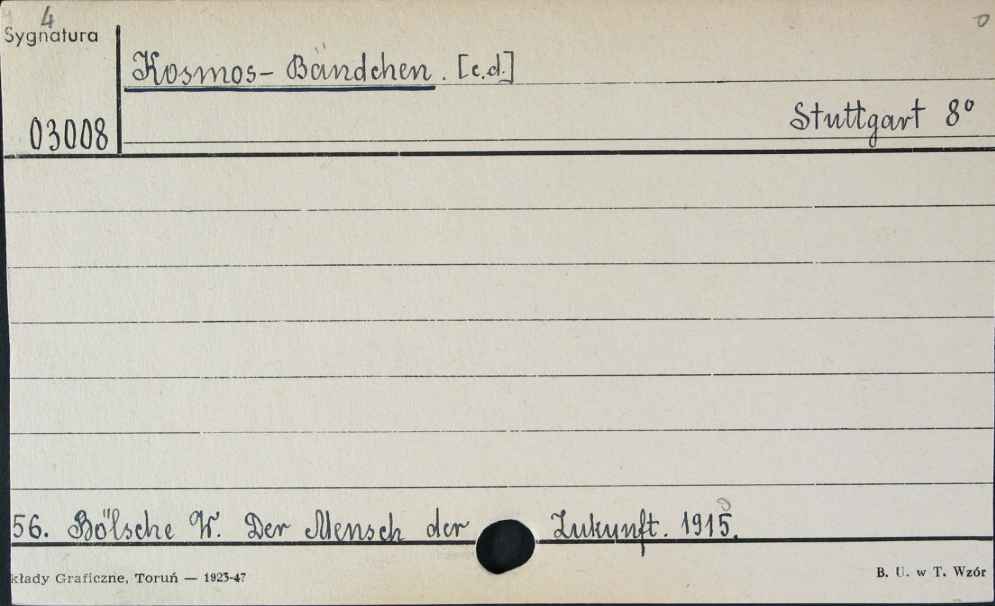 4
Sygnatura
Kosmos-Bändchen. [c.d.]
Stuttgart 8°
03008
56. Bölsche W. Der Mensch der Zukunft. 1915.
kłady Graficzne, Toruń — 1923-47
B. U. w T. Wzór